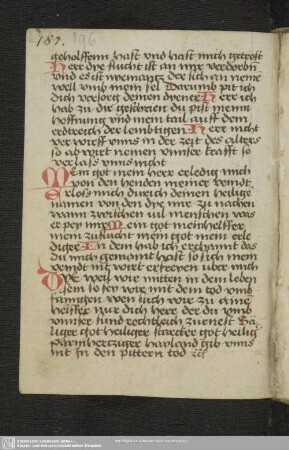 187. 196
geholffenn hast vnd hast mich getrost
Herr dye flucht ist an myr verdorbn
vnd es ist nyemantz der sich an neme
well vmb mein sel Darumb pit ich
dich versorg deinen dyener Herr ich
hab zu dir geschrien du pist meinn
hoffnung vnd mein tail auff dem
erdtreich der lembtigen Herr nicht
ver wirff vnns in der zeit des alters
so ab wirt nemen vnnser krafft so
verlass vnns nicht
Mein got mein herr erledig mich
von den henden meiner veindt
Erloss mich durch deinen heilige
namen von den dye mir zu nachen
wann zwischen vil menschen was
er pey myr Mein got mein helffer
mein zuflucht mein got mein erle
diger In dem hab ich erchannt das
du mich gemaint hast so sich mein
veindt nit wirt erfreyen uber mich
weil wir mitten in dem leben
sein so ser wir mit dem tod vmb
fanngen wen such wir zu eine
helffer nur dich herr der du vmb
vnnser sund rechtleich zurnest Ha
liger got heiliger starcker got heilig
parmhertziger hayland gib vnns
nit in den pittern tod